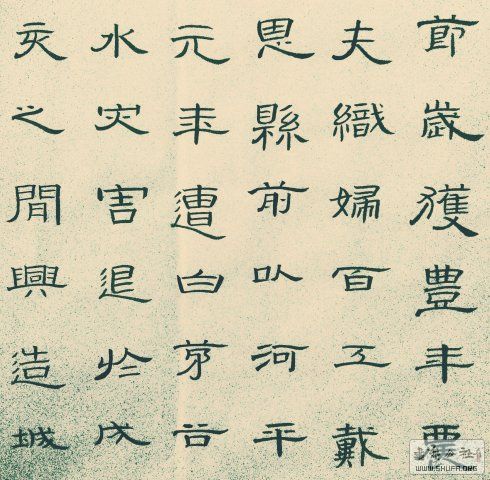 節歲獲豐年農
夫織婦百工戴
恩縣前以河平
元年遭白茅谷
水灾害退於戌
亥之閒興造城
WWW.SHUFA.ORG